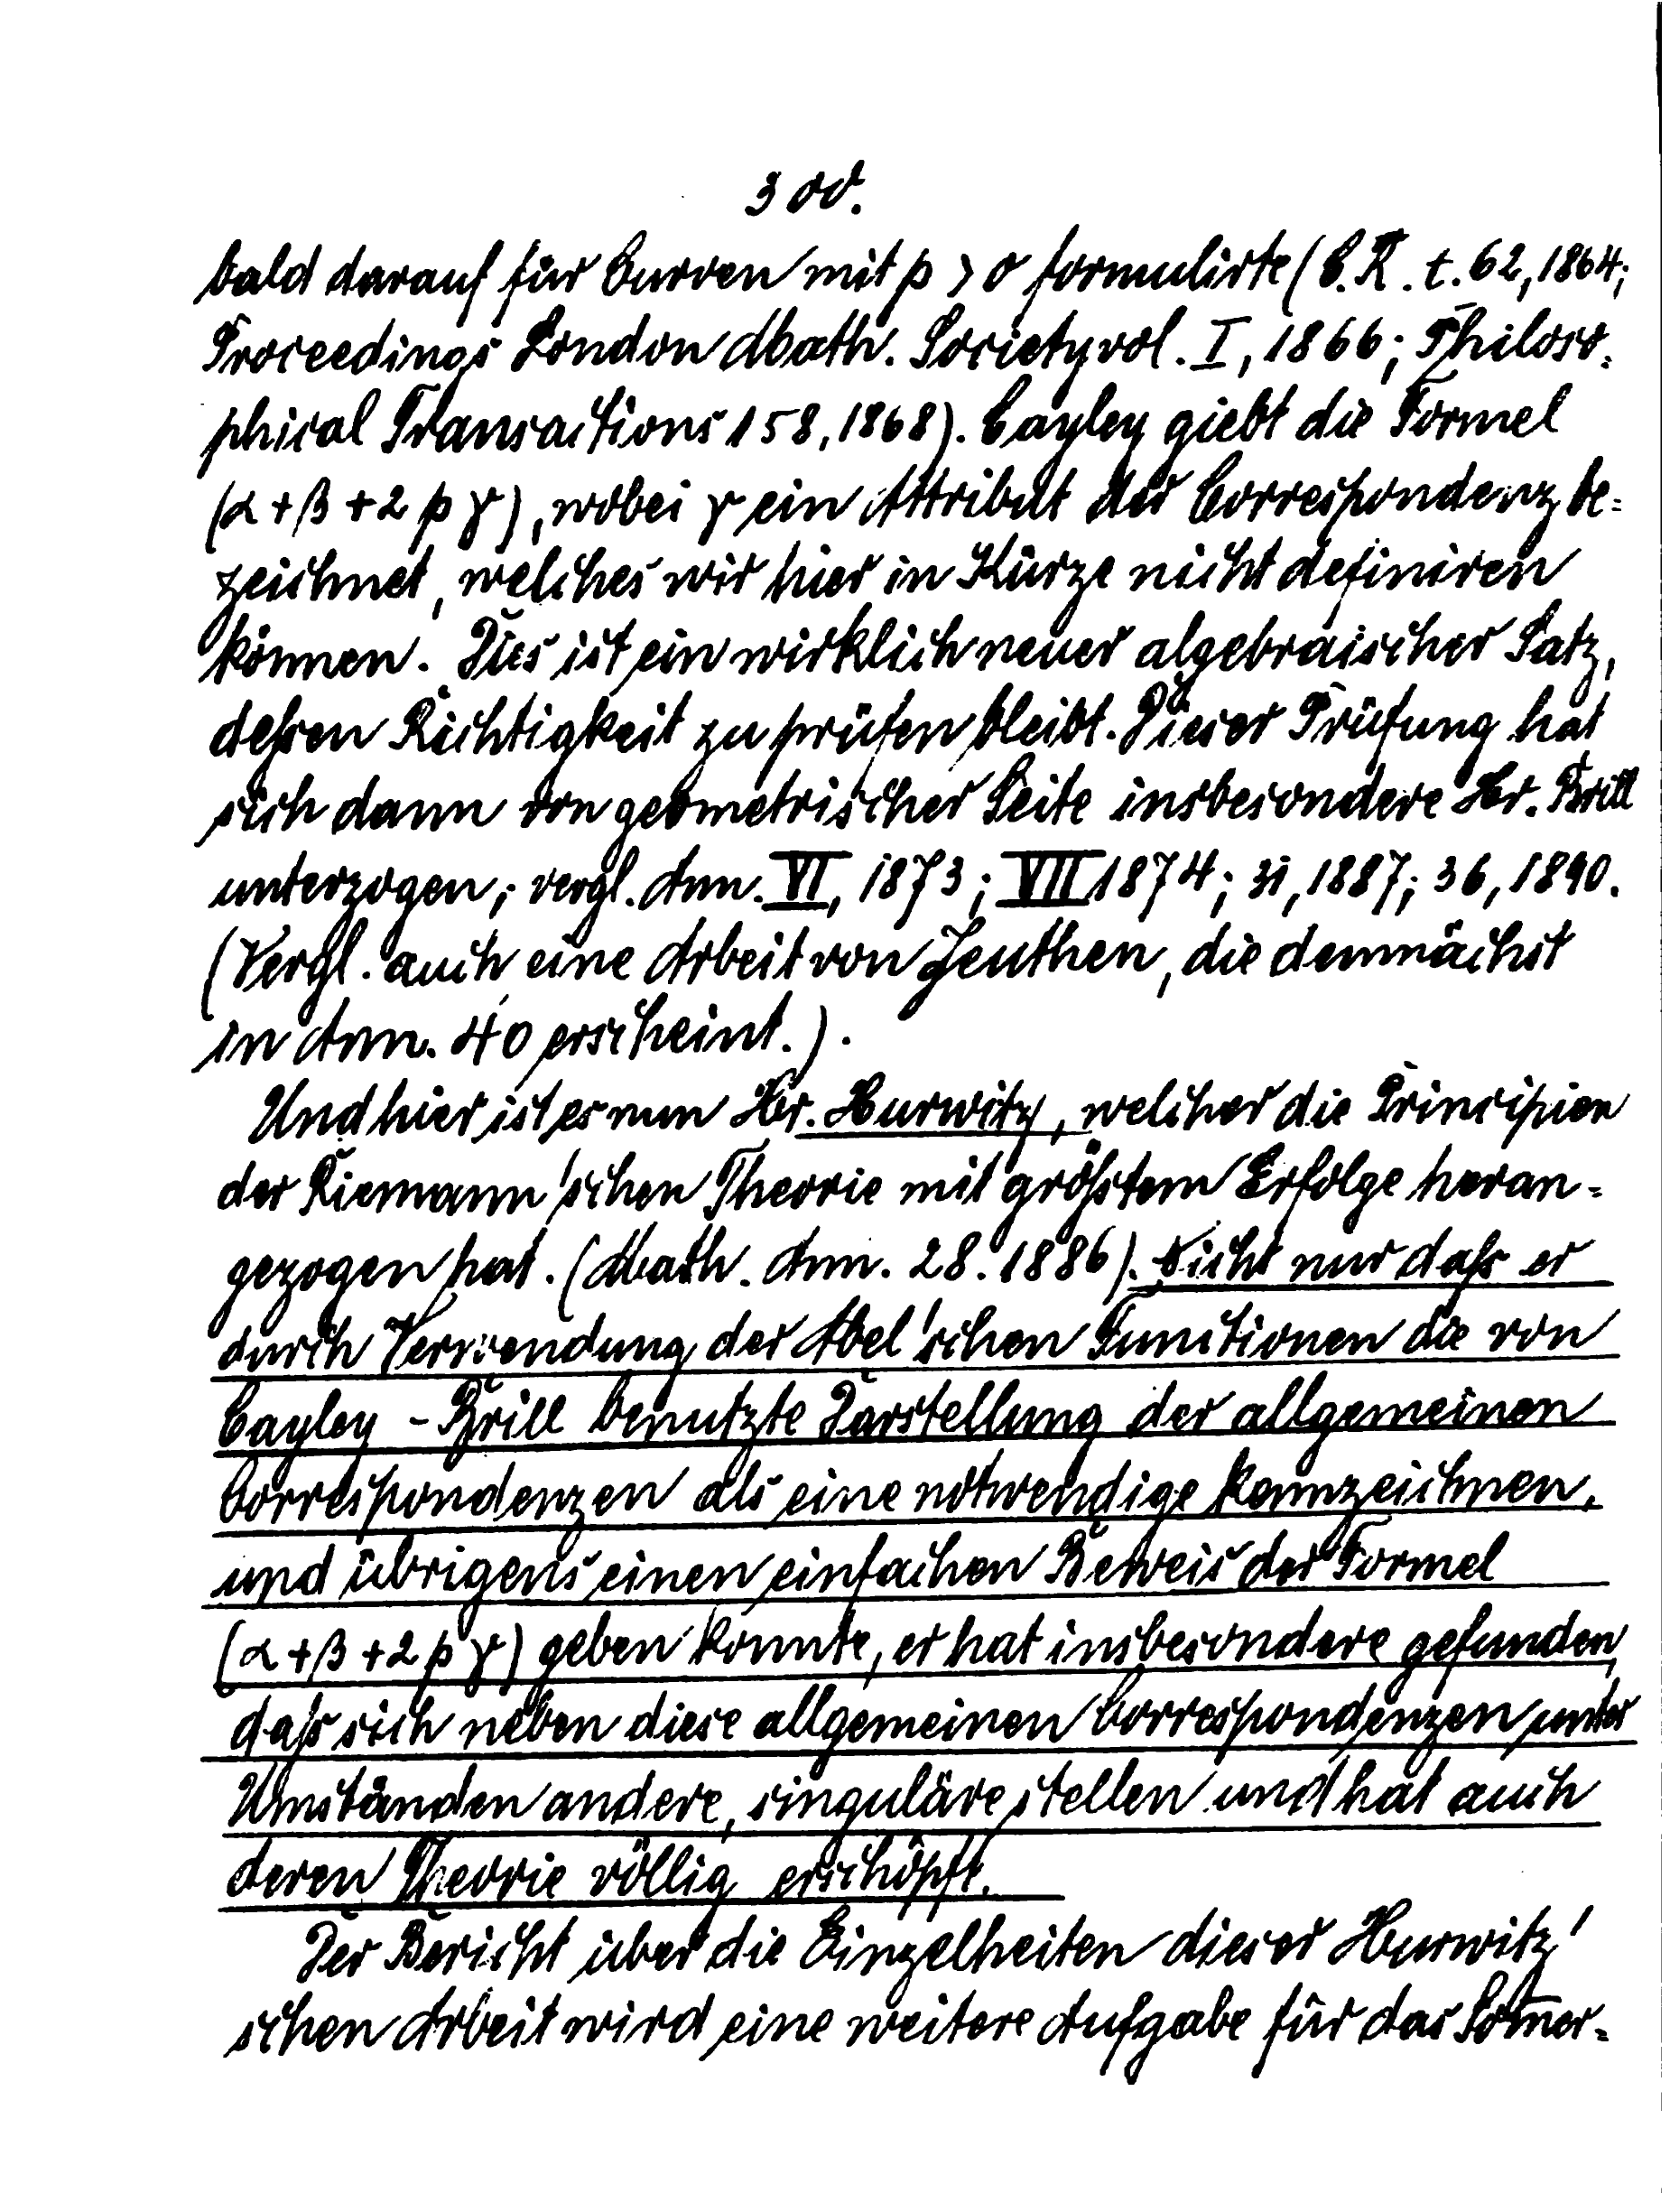 300.
bald darauf für Curven mit p > 0 formulirte (C.R. t. 62, 1864;
Proceedings London Math. Society vol. I, 1866; Philoso-
phical Transactions 158, 1868). Cayley giebt die Formel
(α + β + 2 p γ), wobei γ ein Attribut der Correspondenz be-
zeichnet, welches wir hier in Kürze nicht definiren
können. Dies ist ein wirklich neuer algebraischer Satz,
deßen Richtigkeit zu prüfen bleibt. Dieser Prüfung hat
sich dann von geometrischer Seite insbesondere Hr. Brill
unterzogen; vergl. Ann. VI, 1873; VII 1874; 31, 1887; 36, 1890.
(Vergl. auch eine Arbeit von Zeuthen, die demnächst
in Ann. 40 erscheint.).
Und hier ist es nun Hr. Hurwitz, welcher die Principien
der Riemann'schen Theorie mit größtem Erfolge heran-
gezogen hat. (Math. Ann. 28. 1886). Nicht nur daß er
durch Verwendung der Abel'schen Functionen die von
Cayley - Brill benutzte Darstellung der allgemeinen
Correspondenzen als eine notwendige kennzeichnen,
und übrigens einen einfachen Beweis der Formel
(α + β + 2 p γ) geben konnte, er hat insbesondere gefunden,
daß sich neben diese allgemeinen Correspondenzen unter
Umständen andere, singuläre stellen und hat auch
deren Theorie völlig erschöpft.
Der Bericht über die Einzelheiten dieser Hurwitz'
schen Arbeit wird eine weitere Aufgabe für das Som̅er-